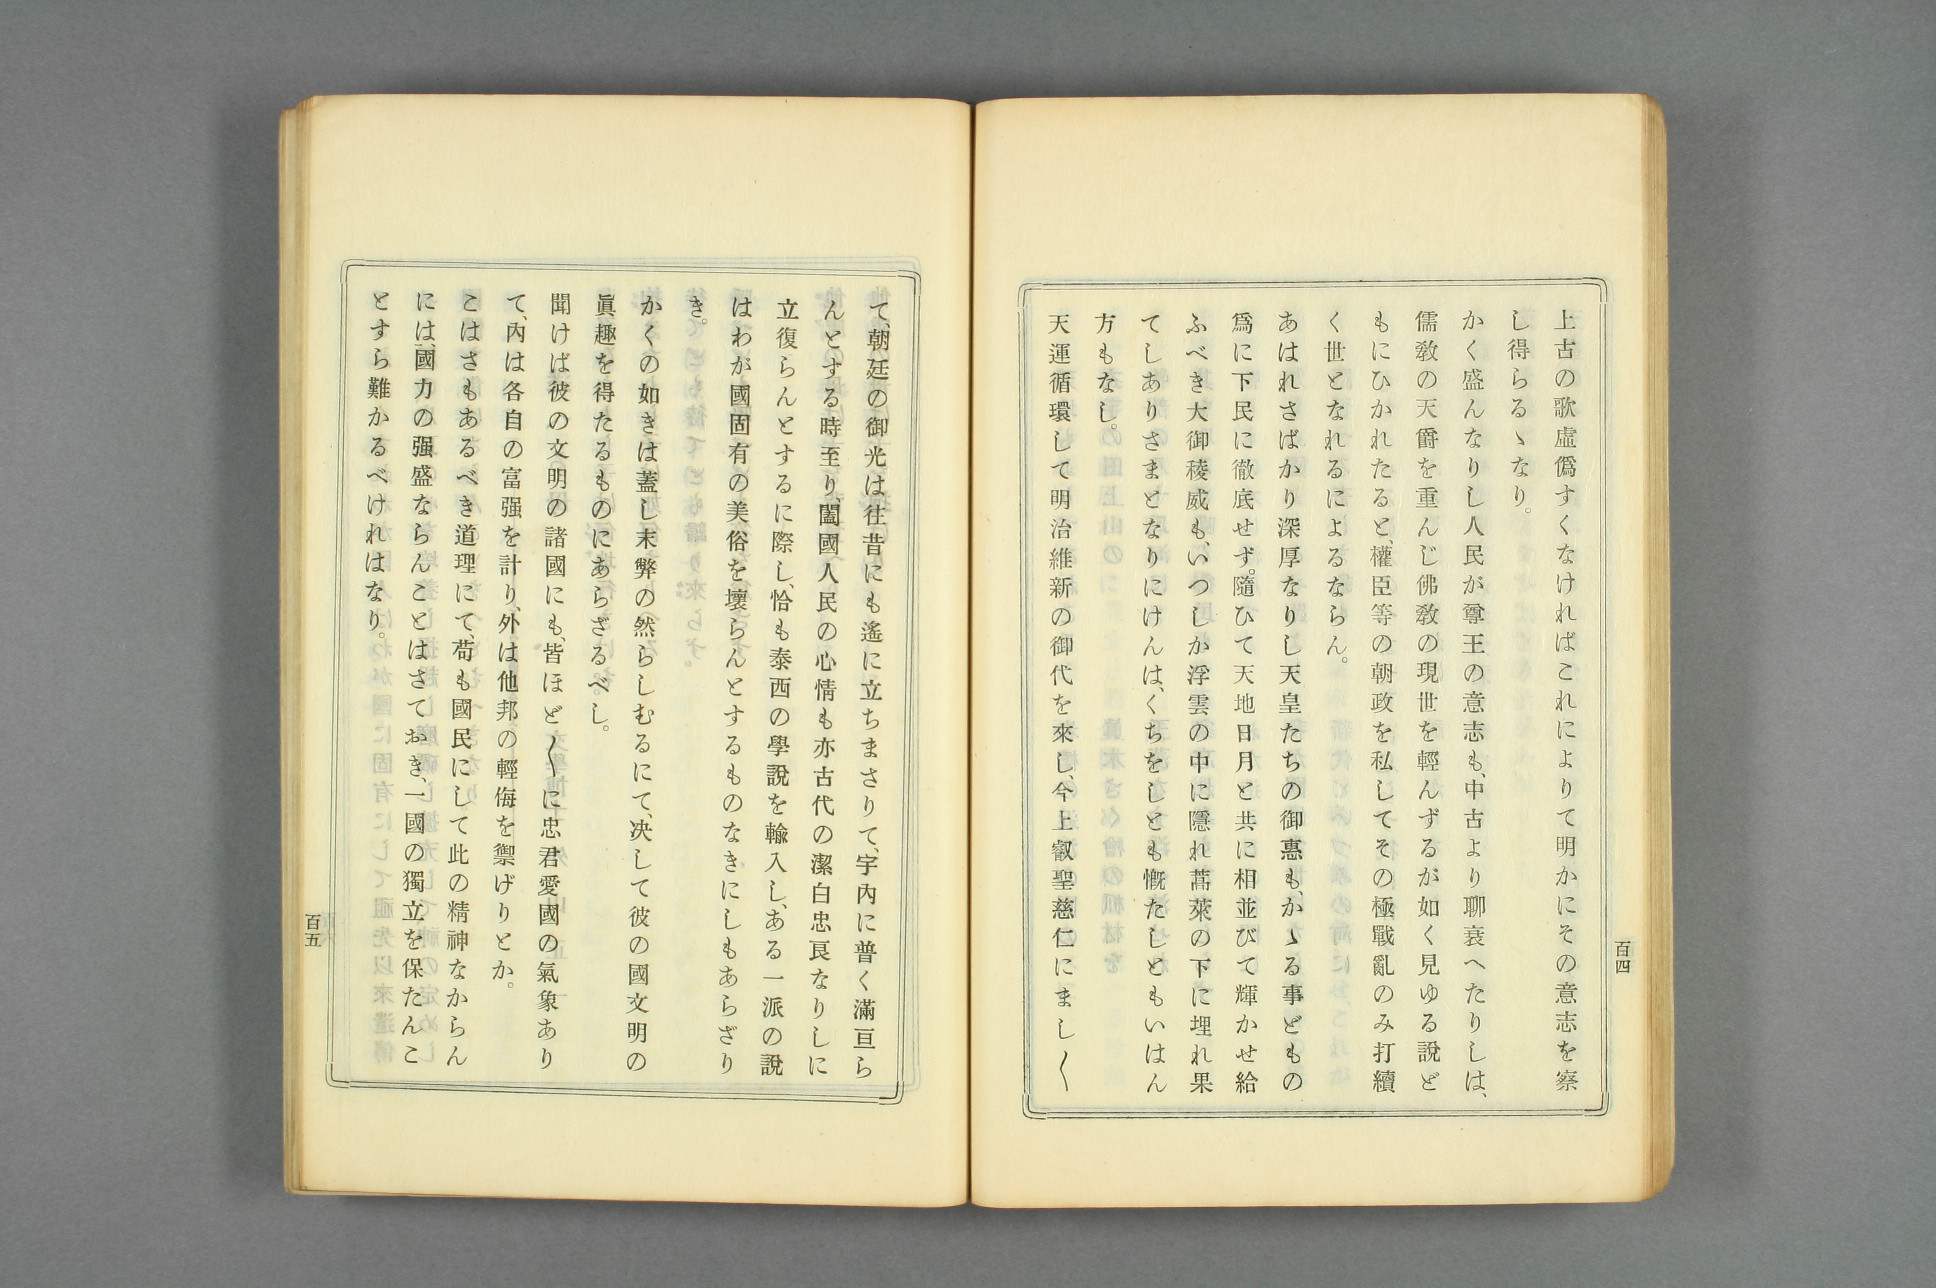 上古の歌虛僞すくなければこれによりて明かにその意志を察
し得らるゝなり。
かく盛んなりし人民が尊王の意志も、中古より聊衰へたりしは、
儒教の天爵を重んじ佛敎の現世を輕んずるが如く見ゆる說ど
もにひかれたると、權臣等の朝政を私してその極戰亂のみ打續
く世となれるによるならん。
あはれさばかり深厚なりし天皇たちの御惠も、かゝる事どもの
爲に下民に徹底せず。隨ひて天地日月と共に相並びて輝かせ給
ふべき大御稜威も、いつしか浮雲の中に隱れ蒿萊の下に埋れ果
てしありさまとなりにけんは、くちをしとも慨たしともいはん
方もなし。
天運循環して明治維新の御代を來し、今上叡聖慈仁にまし〱
百四
て、朝廷の御光は、往昔にも遙に立ちまさりて、宇內に普く滿亘ら
んとする時至り、闔國人民の心情も亦古代の潔白忠良なりしに
立復らんとするに際し、恰も泰西の學說を輸入し、ある一派の說
はわが國固有の美俗を壞らんとするものなきにしもあらざり
き。
かくの如きは蓋し末弊の然らしむるにて、决して彼の國文明の
眞趣を得たるものにあらざるべし。
聞けば彼の文明の諸國にも、皆ほど〱に忠君愛國の氣象あり
て、內は各自の富强を計り、外は他邦の輕侮を禦げりとか。
こはさもあるべき道理にて、苟も國民にして此の精神なからん
には、國力の强盛ならんことはさておき、一國の獨立を保たんこ
とすら難かるべければなり。
百五